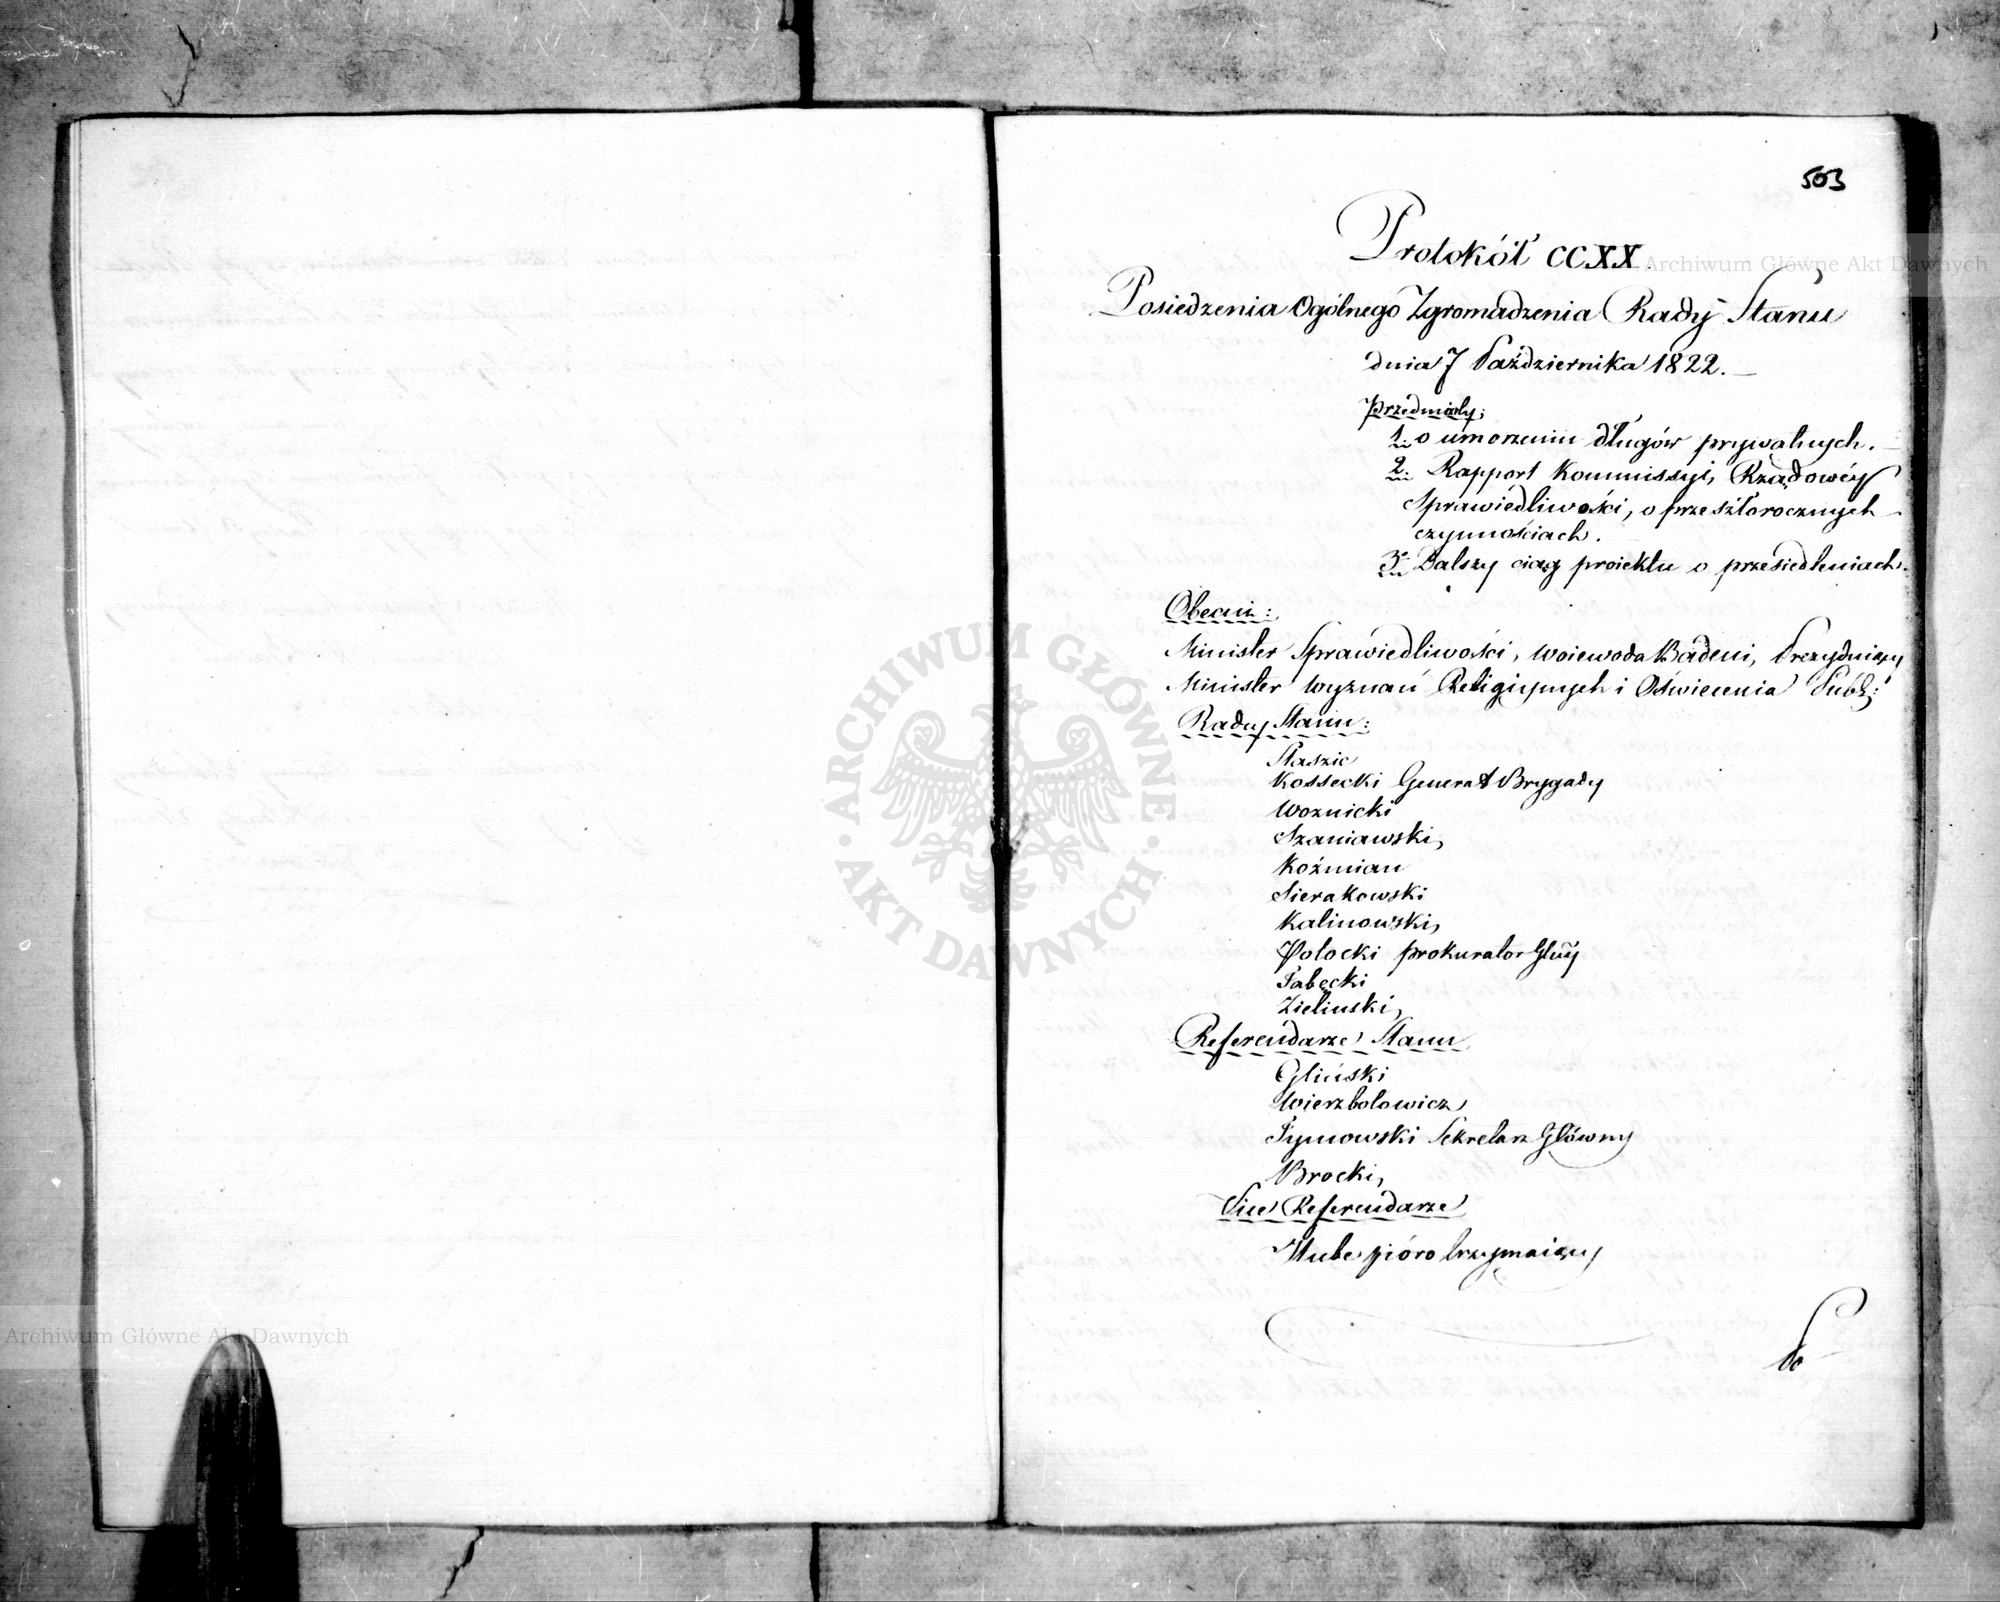 503
Protokół CCXX.
Posiedzenia Ogólnego Zgromadzenia Rady Stanu
dnia 7 Października 1822. —
Przedmioty:
1. o umorzeniu długów prywatnych. —
2. Rapport Kommissyi Rządowéy
Sprawiedliwości, o przeszłorocznych
czynnościach.
3. Dalszy ciąg proiektu o przesiedleniach.
Obecni:
Minister Sprawiedliwości, Woiewoda Badeni, Prezyduiący
Minister Wyznań Religiynych i Oświecenia Publ:
Radcy Stanu:
Staszic
Kossecki Generał Brygady
Woznicki
Szaniawski,
Koźmian
Sierakowski
Kalinowski,
Potocki Prokurator Głny
Tabęcki
Zieliński,
Referendarze Stanu
Gliński
Wierzbołowicz
Tymowski Sekretarz Główny
Brocki,
Vice Referendarze
Hube pióro trzymaiący
Po
Archiwum Główne Akt Dawnych
ARCHIWUM GŁÓWNE · AKT DAWNYCH ·
Archiwum Główne Akt Dawnych